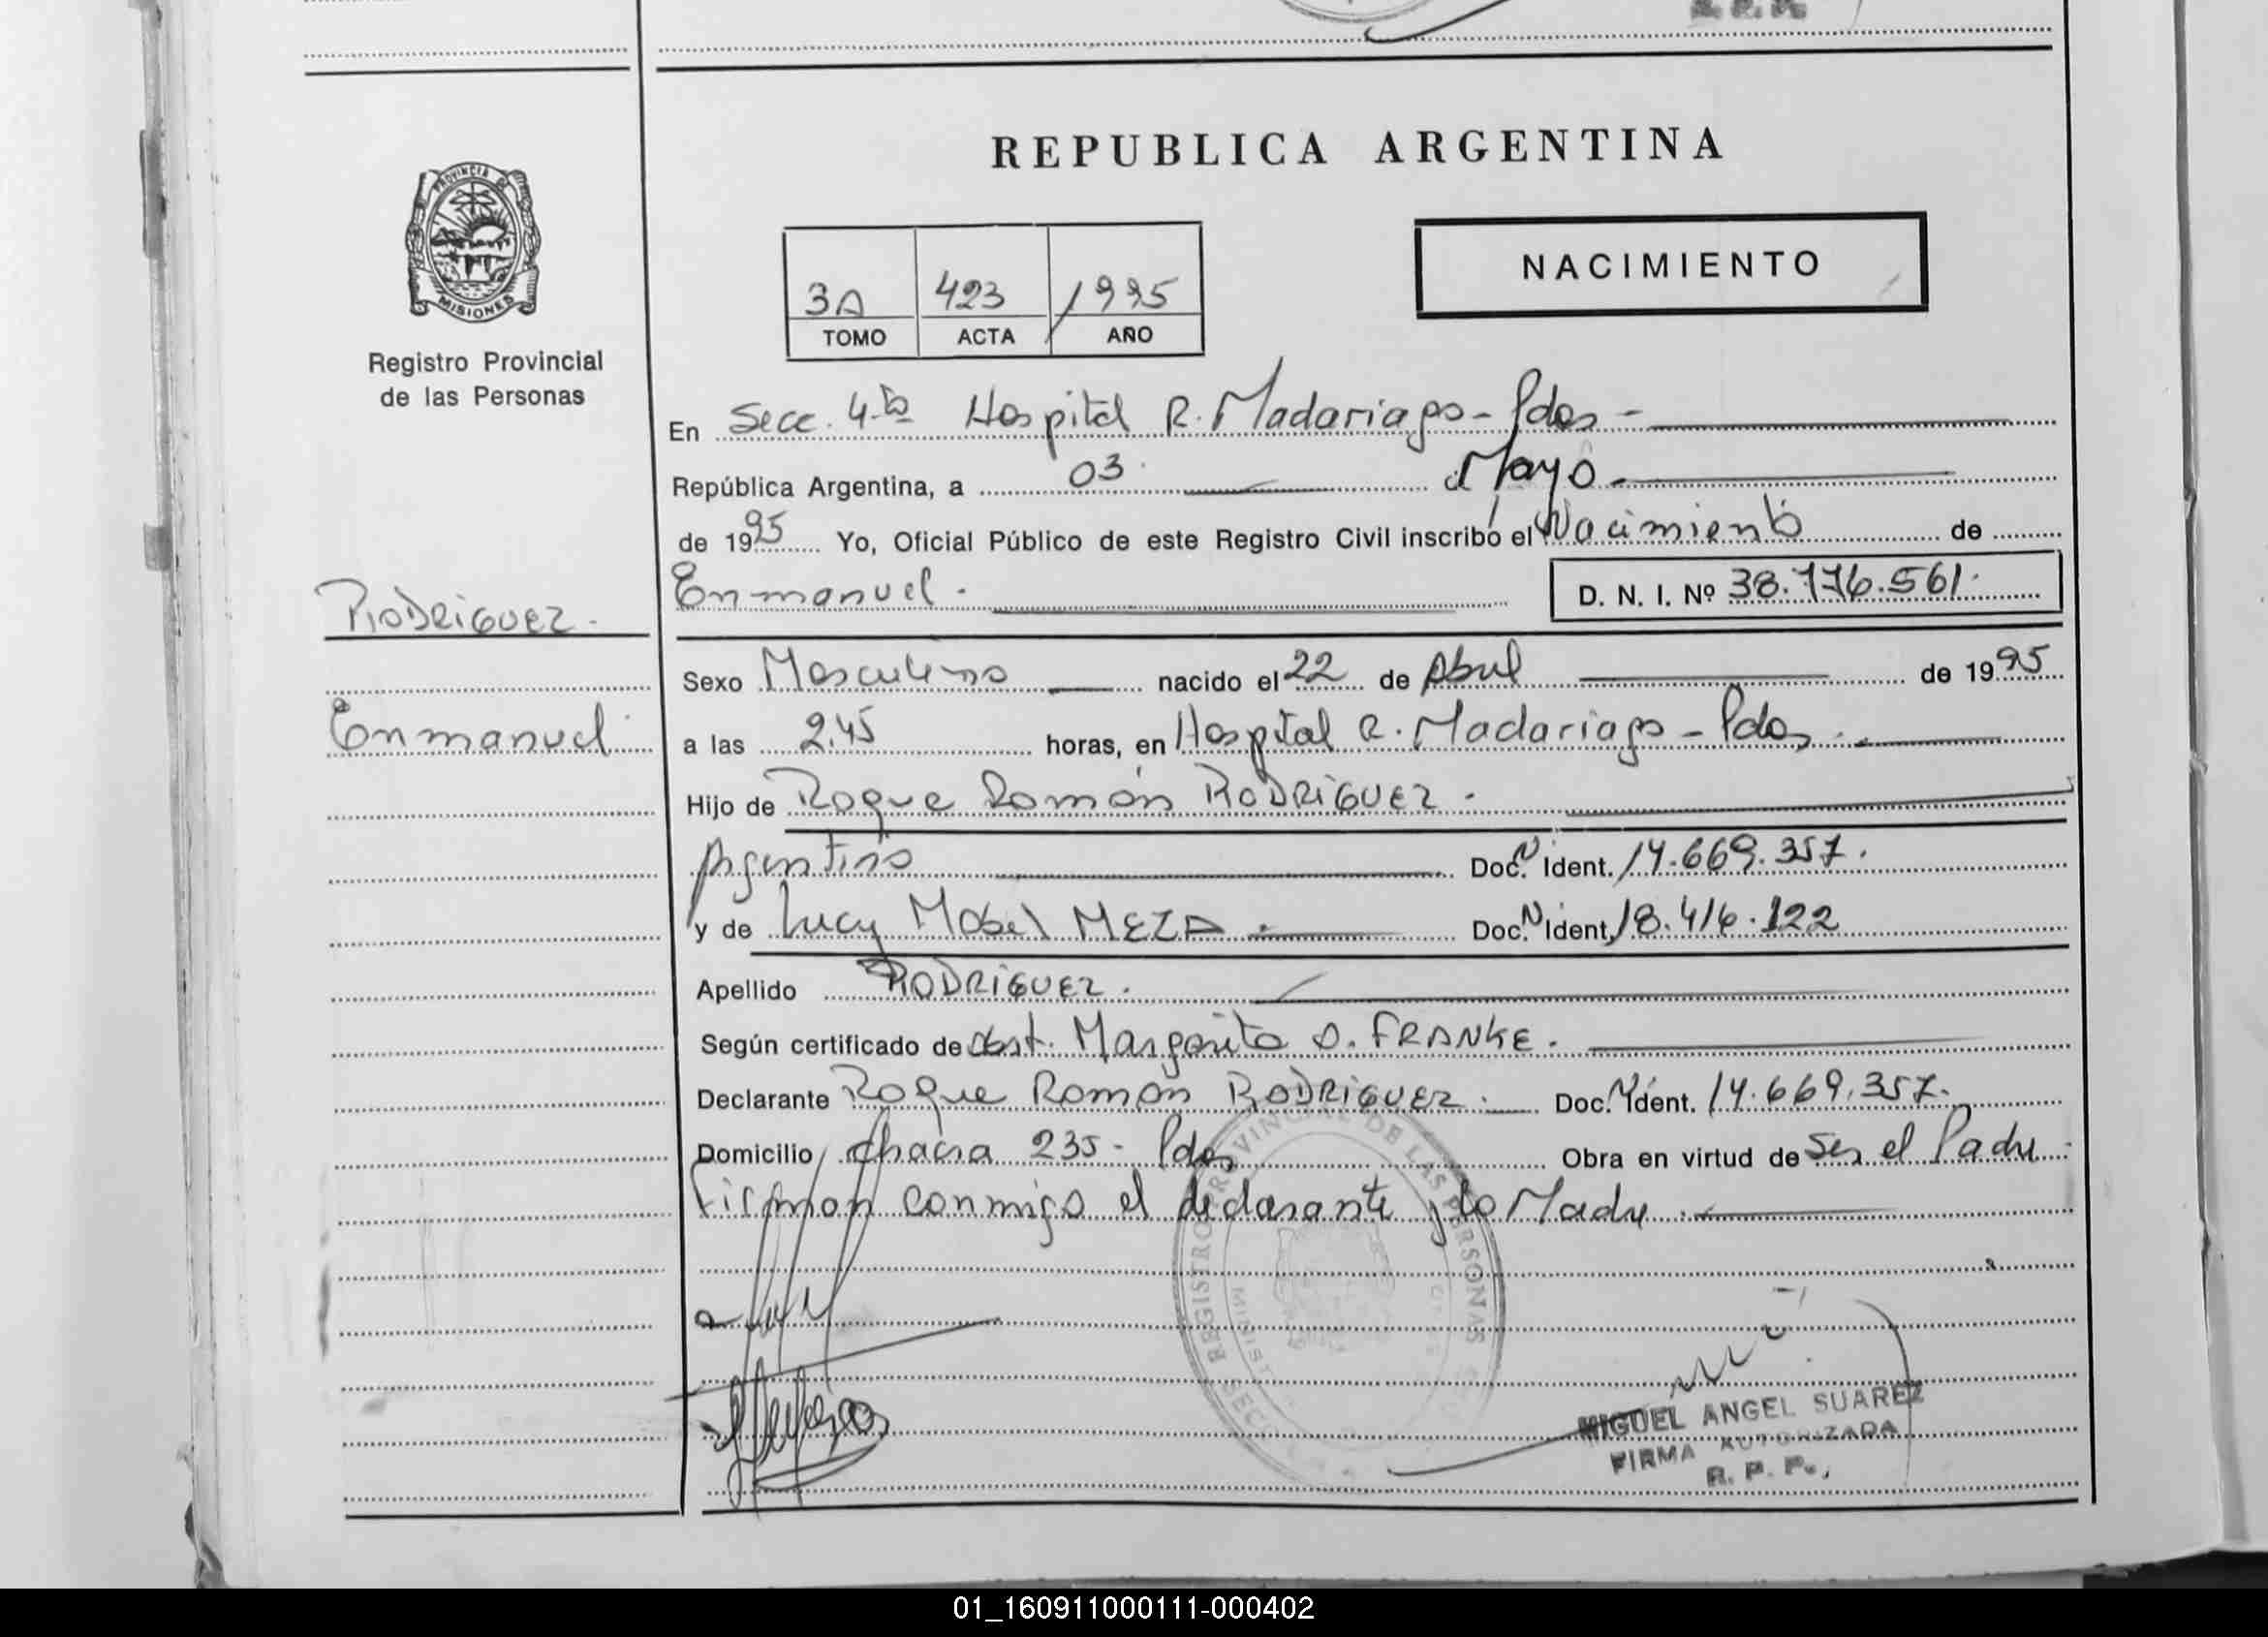 REPUBLICA ARGENTINA
PROVINCIA DE
MISIONES
Registro Provincial
de las Personas
3A 423 1995
TOMO ACTA AÑO
NACIMIENTO
En Secc. 4ta Hospital R. Madariaga - Pdas -
República Argentina, a 03 Mayo
de 1995 Yo, Oficial Público de este Registro Civil inscribo el Nacimiento de
Enmanuel. D. N. I. Nº 38.776.561.
RODRIGUEZ.
Enmanuel
Sexo Masculino nacido el 22 de Abril de 1995
a las 2,45 horas, en Hospital R. Madariaga - Pdas.
Hijo de Roque Román RODRIGUEZ.
Argentino Doc. N Ident. 14.669.357.
y de Lucy Mabel MEZA Doc. N Ident. 18.416.122
Apellido RODRIGUEZ.
Según certificado de Obst. Margarita O. FRANKE.
Declarante Roque Román RODRIGUEZ. Doc. N Ident. 14.669.357.
Domicilio Chacra 235 - Pdas Obra en virtud de Ser el Padre.
Firman conmigo el declarante y la Madre.
REGISTRO PROVINCIAL DE LAS PERSONAS
MIGUEL ANGEL SUAREZ
FIRMA AUTORIZADA
R. P. P.
01_160911000111-000402